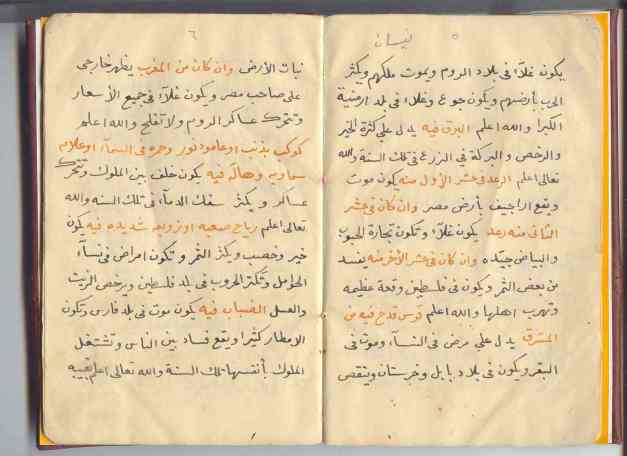 ٥ نيسان
يكون غلآء في بلاد الروم ويموت ملكهم ويكثر
الحرب بأرضهم ويكون جوع وغلاء في بلد ارمنية
الكبرا والله اعلم البرق فيه يدل علي كثرة الخير
والرخص والبركة في الزرع في تلك السنة والله
تعالى اعلم الرعد في عشر الأول منه يكون موت
ويقع اراجيف بأرض مصر وان كان في عشر
الثاني منه رعد يكون غلآء وتكون تجارة الحبوب
والبياض جيّده وان كان في عشر الأخر منه يفسد
من بعض الثمر ويكون في فلسطين وقعة عظيمه
وتهرب اهلها والله اعلم قوس قدح فيه من
المشرق يدل علي مرض في النسآء وموت في
البقر ويكون في بلاد بابل وخرستان وينقص
٦
نبات الأرض وان كان من المغرب يظهر خارجي
علي صاحب مصر ويكون غلآء في جميع الأسعار
وتتحرك عساكر الروم ولا تفلح والله اعلم
كوكب بذنب او عامود نور وحمره في السمآء او علام
سماويه وهاله فيه يكون خلف بين الملوك وتتحرك
عساكر ويكثر سفك الدمآء في تلك السنه والله
تعالى اعلم رياح صعبه او زوبعه شديده فيه يكون
خير وخصب ويكثر الثمر وتكون امراض في نسآء
الحوٓمل وتكثر الحروب في بلد فلسطين ويرخص الزيت
والعسل الضباب فيه يكون موت في بلد فارس وتكون
الامطار كثيرا ويقع فساد بين الناس وتشتغل
الملوك بأنفسها تلك السنة والله تعالى اعلم بغيبه